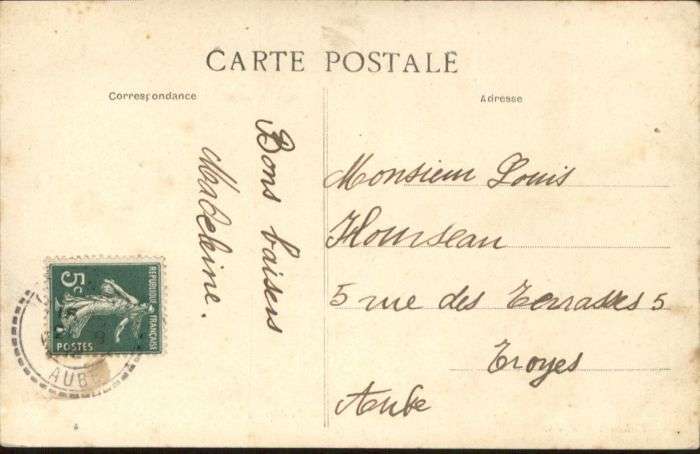 CARTE POSTALE
Correspondance
Adresse
Bons baisers
Madeleine.
Monsieur Louis
Hourseau
5 rue des Terrasses 5
Troyes
Aube
5c
REPUBLIQUE FRANÇAISE
POSTES
AUBE